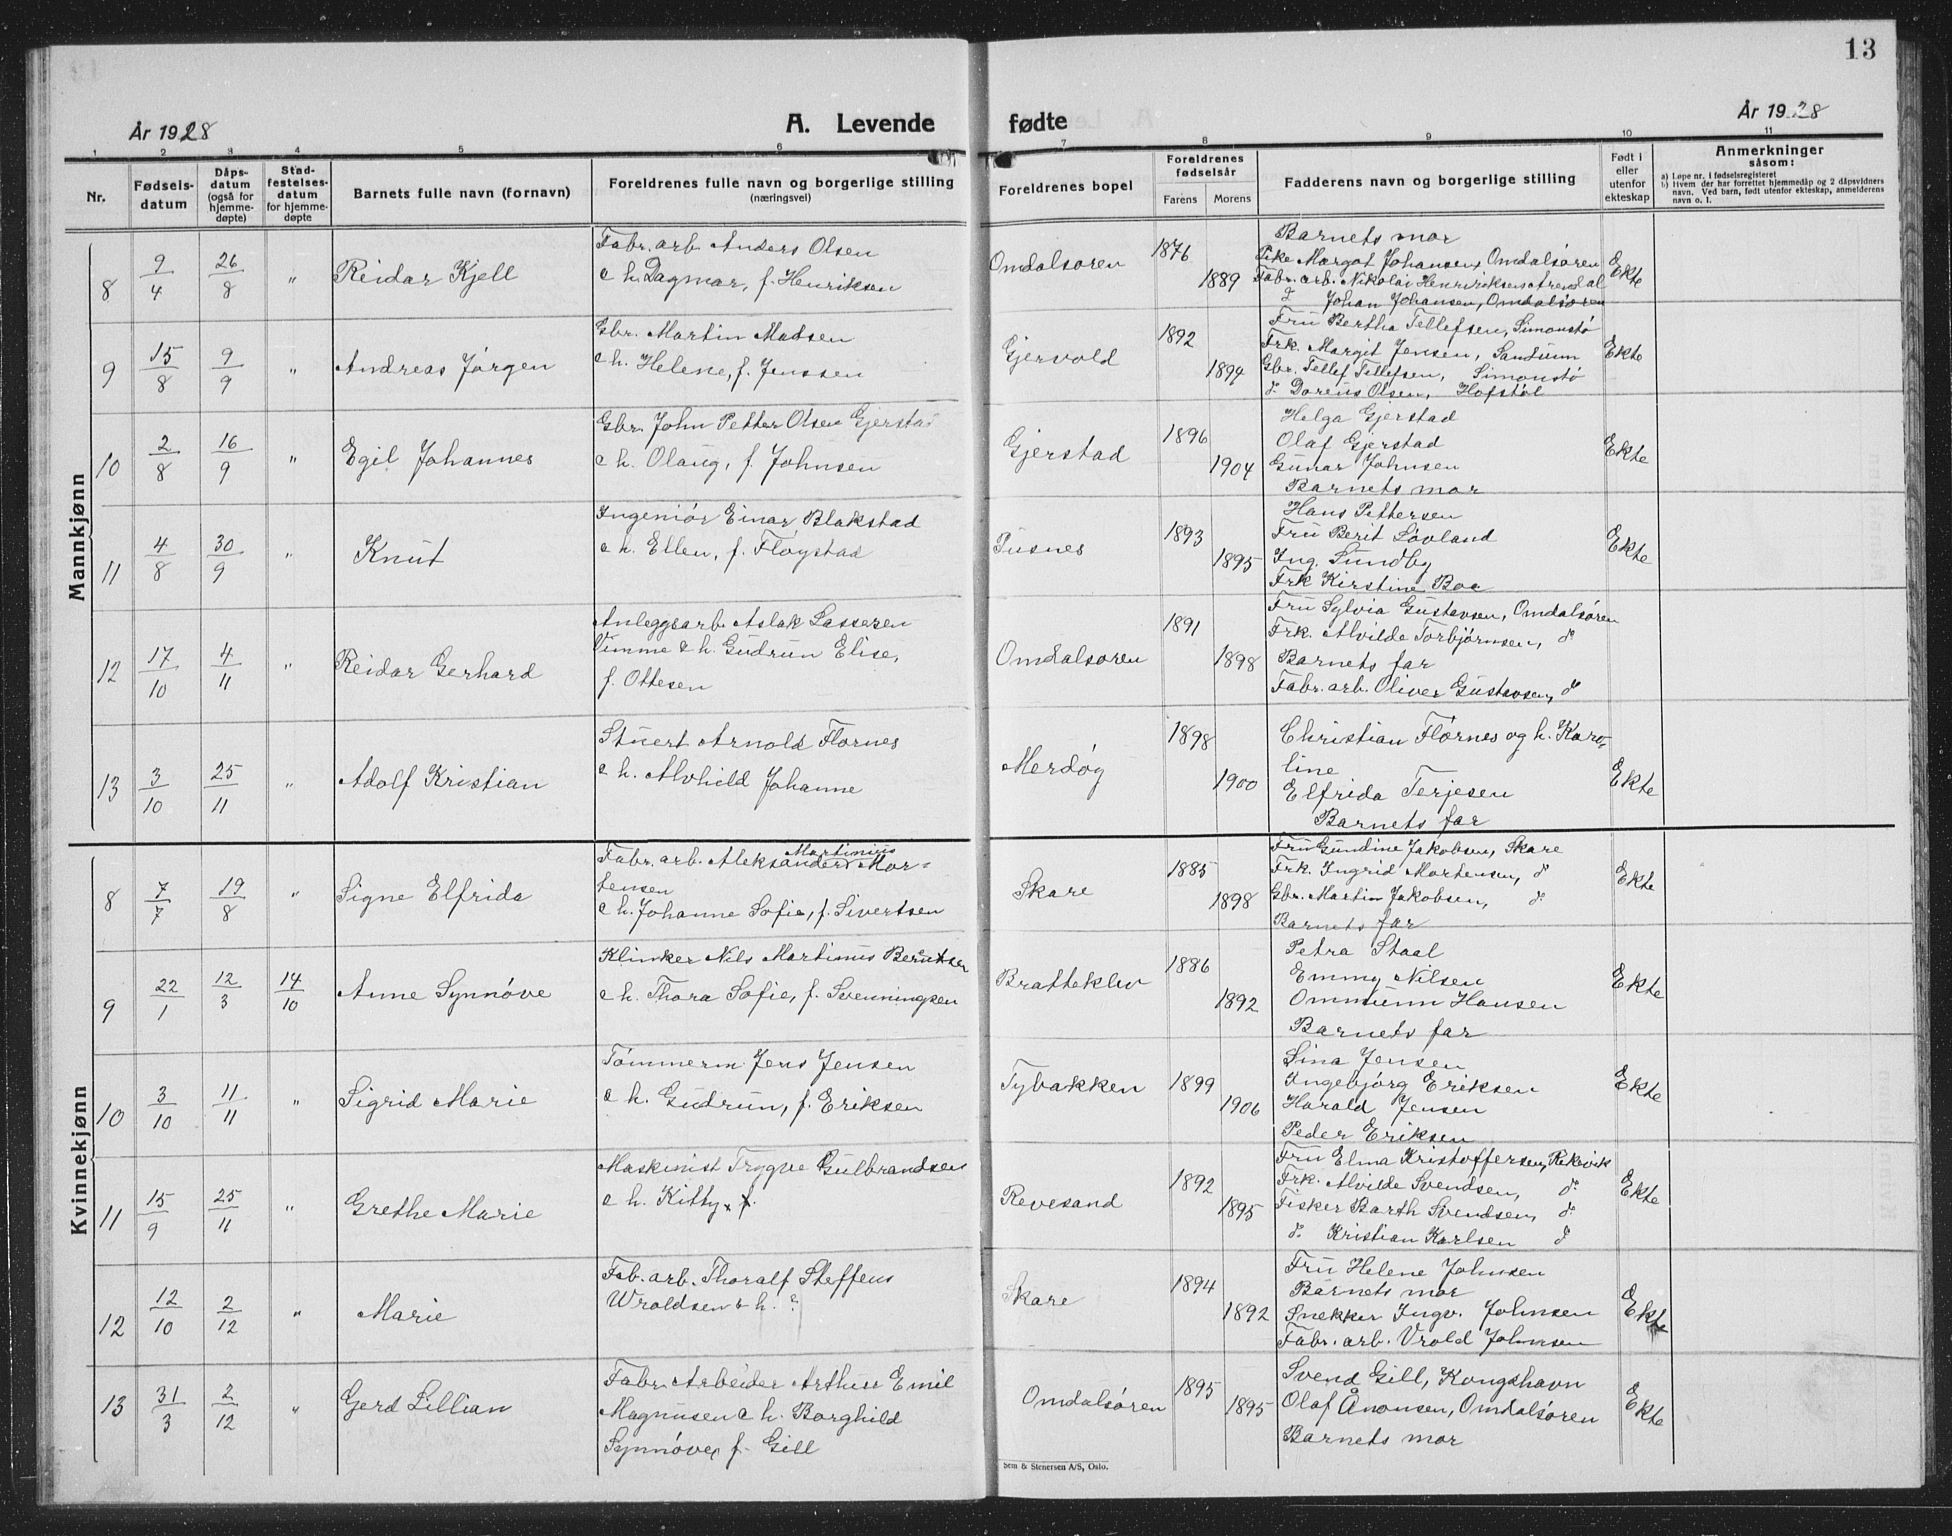 13
År 1928
A. Levende
fødte
År 1928
1 2 3 4 5 6 7 8 9 10 11
Nr.
Fødselsdatum
Dåpsdatum (også for hjemmedøpte)
Stadfestelsesdatum for hjemmedøpte
Barnets fulle navn (fornavn)
Foreldrenes fulle navn og borgerlige stilling
(næringsvei)
Foreldrenes bopel
Foreldrenes fødselsår
Farens Morens
Fadderens navn og borgerlige stilling
Født i eller utenfor ekteskap
Anmerkninger
såsom:
a) Løpe nr. i fødselsregisteret
b) Hvem der har forrettet hjemmedåp og 2 dåpsvidners
navn. Ved barn, født utenfor ekteskap, anmelderens
navn o. l.
Mannkjønn
8 9/4 26/8 " Reidar Kjell
Fabr. arb. Anders Olsen
e h. Dagmar, f. Henriksen
Omdalsøren 1876 1889
Barnets mor
Pike Margot Johansen, Omdalsøren
Fabr. arb. Nikolai Henriksen Arendal
d Johan Johansen, Omdalsøren
Ekte
9 15/8 9/9 " Andreas Jørgen
Gbr. Martin Madsen
e h. Helene, f. Jenssen
Gjervold 1892 1894
Fru Bertha Tellefsen, Simonstø
Frk. Margit Jensen, Sandum
Gbr. Tellef Tellefsen, Simonstø
d. Dorenus Olsen, Hofstøl
Ekte
10 2/8 16/9 " Egil Johannes
Gbr. John Petter Olsen Gjerstad
e h. Olaug, f. Johnsen
Gjerstad 1896 1904
Helga Gjerstad
Olaf Gjerstad
Gunar Johnsen
Barnets mor
Ekte
11 4/8 30/9 " Knut
Ingeniør Einar Blakstad
e h. Ellen, f. Fløystad
Pusnes 1893 1895
Hans Pettersen
Fru Berit Løvland
Ing. Sundby
Frk Kirstine Boe
Ekte
12 17/10 4/11 " Reidar Gerhard
Anleggsarb. Aslak Lassesen
Vimme e h. Gudrun Elise,
f. Ottesen
Omdalsøren 1891 1898
Fru Sylvia Gustavsen, Omdalsøren
Frk. Alvilde Torbjørnsen, d
Barnets far
Fabr. arb. Oliver Gustavsen, d
13 3/10 25/11 " Adolf Kristian
Stuert Arnold Flørnes
e h. Alvhild Johanne
Merdøy 1898 1900
Christian Flørnes og h. Karo-
line
Elfrida Terjesen
Barnets far
Ekte
Kvinnekjønn
8 7/7 19/8 " Signe Elfrida
Martinius
Fabr. arb. Aleksander Mor-
tensen
e h. Johanne Sofie, f. Sivertsen
Skare 1885 1898
Fru Gundine Jakobsen, Skare
Frk. Ingrid Mortensen, d
Gbr. Martin Jakobsen, d.
Barnets far
Ekte
9 22/1 12/3 14/10 Anne Synnøve
Klinker Nils Martinius Berntsen
e h. Thora Sofie, f. Svenningsen
Bratteklev 1886 1892
Petra Staal
Emmy Nilsen
Ommunn Hansen
Barnets far
Ekte
10 3/10 11/11 " Sigrid Marie
Tømmerm. Jens Jensen
e h. Gudrun, f. Eriksen
Tybakken 1899 1906
Sina Jensen
Ingebjørg Eriksen
Harald Jensen
Peder Eriksen
Ekte
11 15/9 25/11 " Grethe Marie
Maskinist Trygve Gulbrandsen
e h. Kitty, f.
Revesand 1892 1895
Fru Elma Kristoffersen, Rekevik
Frk. Alvilde Svendsen, d.
Fisker Barth Svendsen, d.
d. Kristian Karlsen d
Ekte
12 12/10 2/12 " Marie
Fab. arb. Thoralf Steffens
Wroldsen e h. ?
Skare 1894 1892
Fru Helene Johnsen
Barnets mor
Snekker Ingv. Johnsen
Fabr. arb. Vrold Johnsen
Ekte
13 31/3 2/12 " Gerd Lillian
Fabr. Arbeider Arthur Emil
Magnusen e h. Borghild
Synnøve, f. Gill
Omdalsøren 1895 1895
Svend Gill, Kongshavn
Olaf Ånonsen, Omdalsøren
Barnets mor
Ekte
Sem & Stenersen A/S, Oslo.